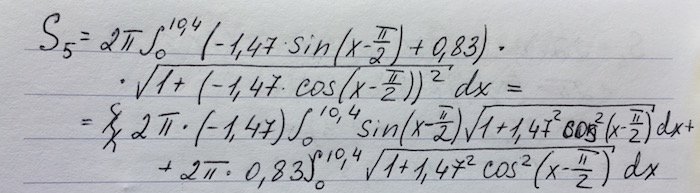 S₅ = 2π ∫₀^10,4 (-1,47 · sin(x - π/2) + 0,83) ·
· √(1 + (-1,47 · cos(x - π/2))²) dx =
= 2π · (-1,47) ∫₀^10,4 sin(x - π/2) √(1 + 1,47² cos²(x - π/2)) dx +
+ 2π · 0,83 ∫₀^10,4 √(1 + 1,47² cos²(x - π/2)) dx